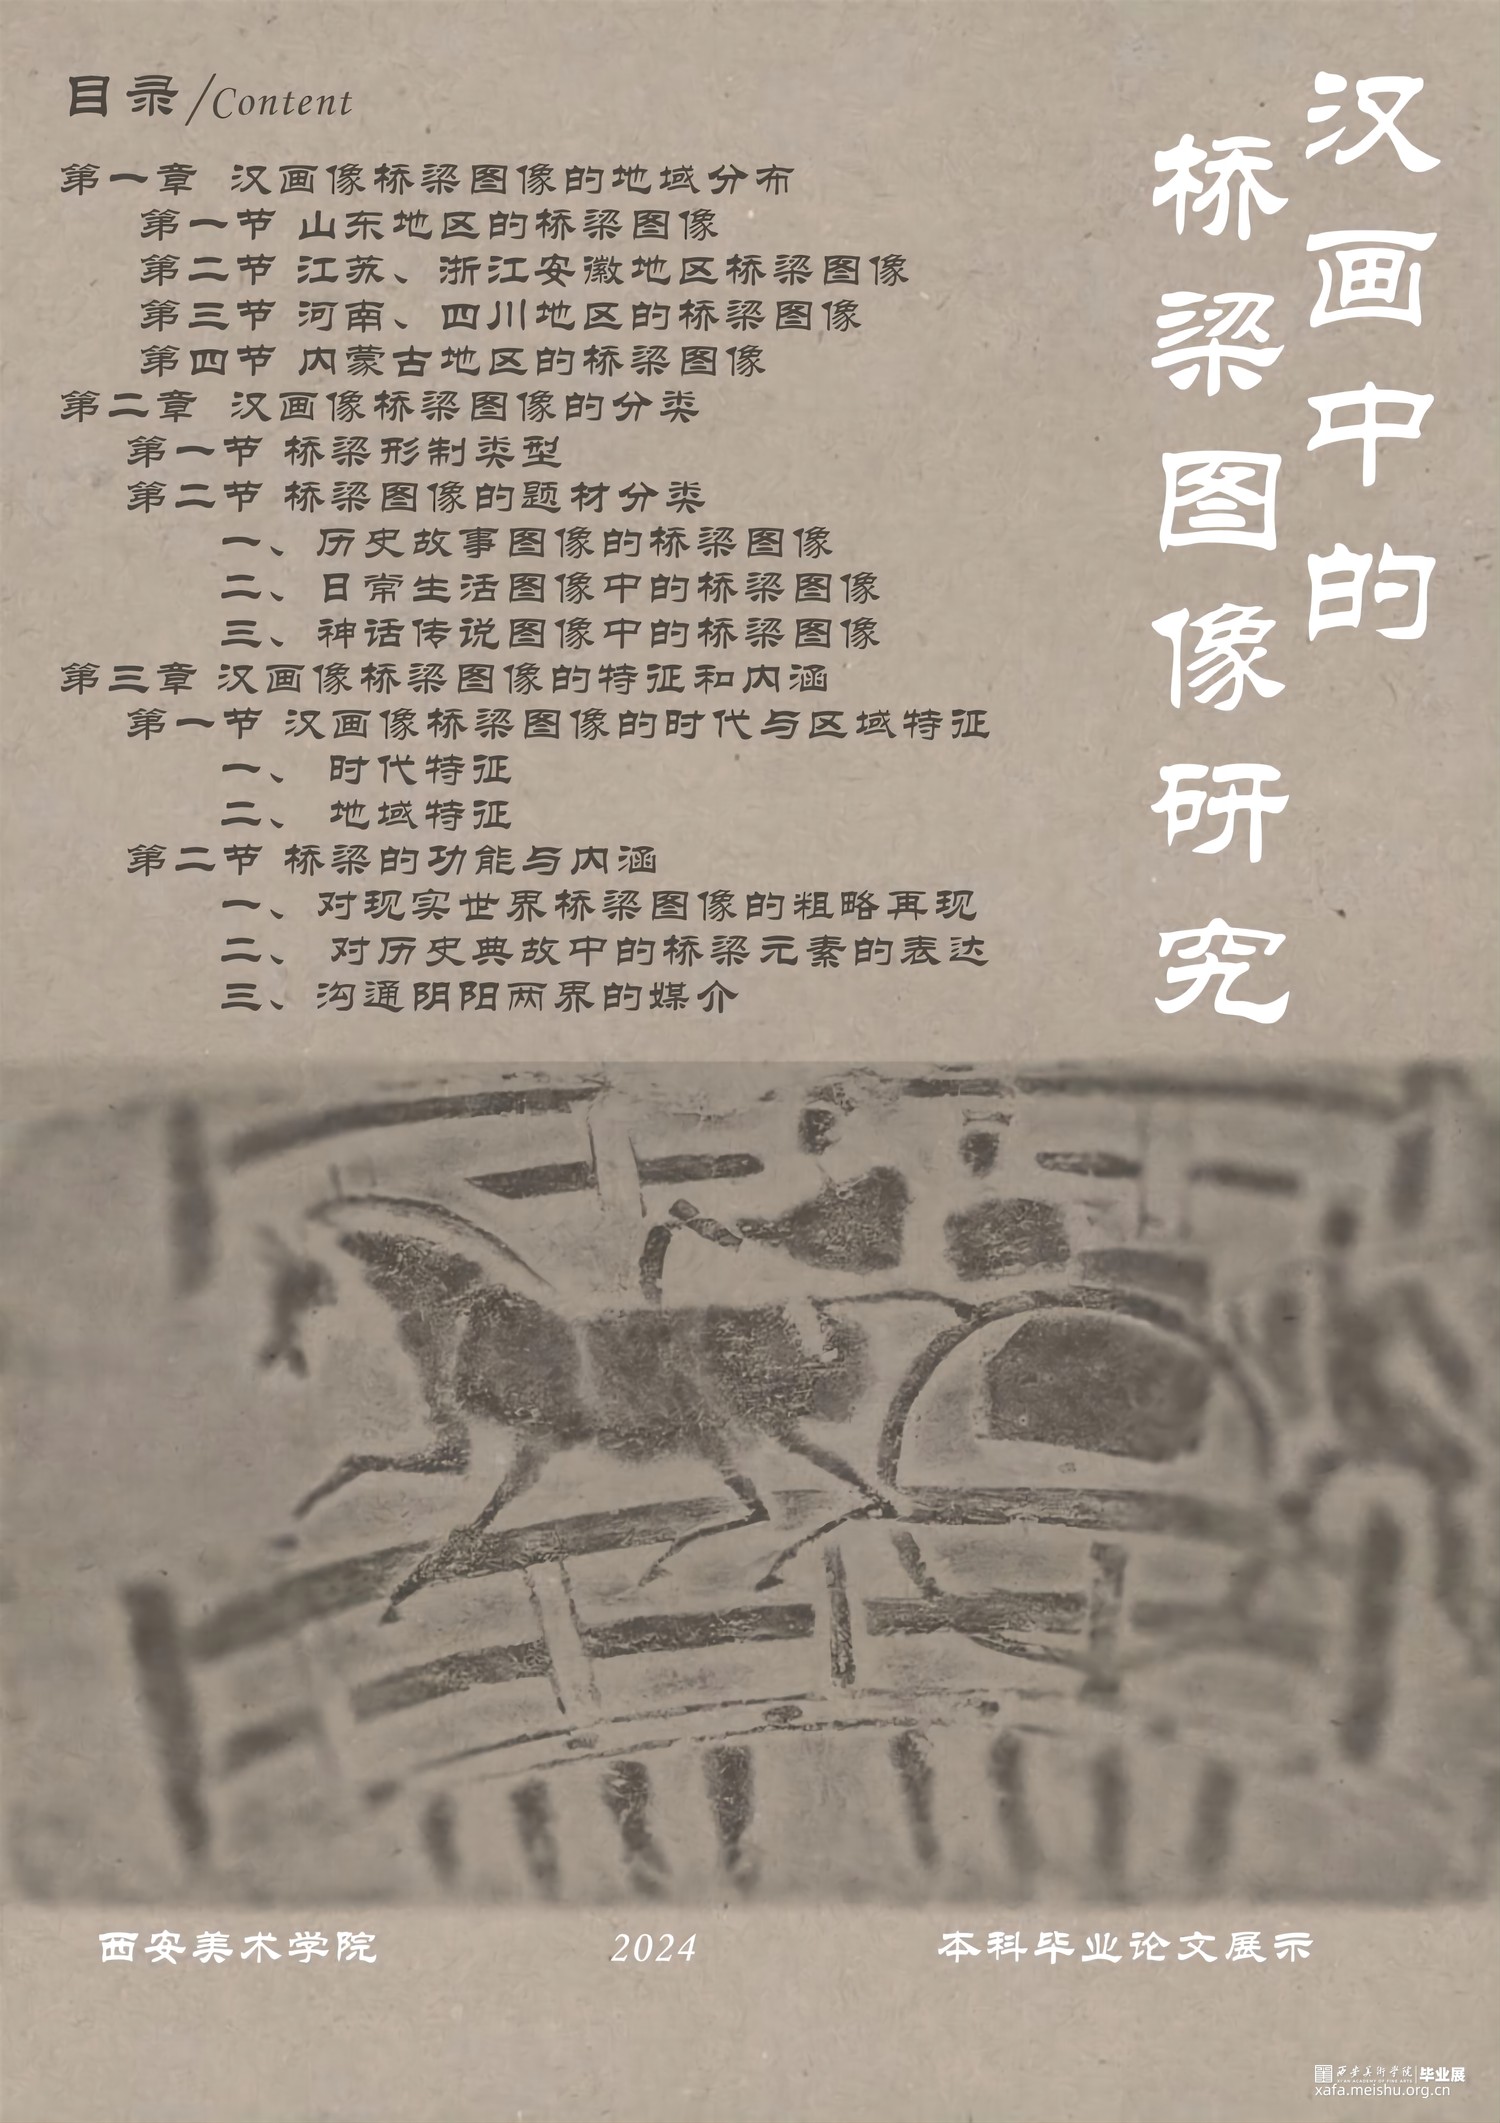 汉画中的
桥梁图像研究
目录/Content
第一章 汉画像桥梁图像的地域分布
第一节 山东地区的桥梁图像
第二节 江苏、浙江安徽地区桥梁图像
第三节 河南、四川地区的桥梁图像
第四节 内蒙古地区的桥梁图像
第二章 汉画像桥梁图像的分类
第一节 桥梁形制类型
第二节 桥梁图像的题材分类
一、历史故事图像的桥梁图像
二、日常生活图像中的桥梁图像
三、神话传说图像中的桥梁图像
第三章 汉画像桥梁图像的特征和内涵
第一节 汉画像桥梁图像的时代与区域特征
一、 时代特征
二、 地域特征
第二节 桥梁的功能与内涵
一、对现实世界桥梁图像的粗略再现
二、 对历史典故中的桥梁元素的表达
三、沟通阴阳两界的媒介
西安美术学院 2024 本科毕业论文展示
西安美術學院 毕业展
XI'AN ACADEMY OF FINE ARTS
xafa.meishu.org.cn